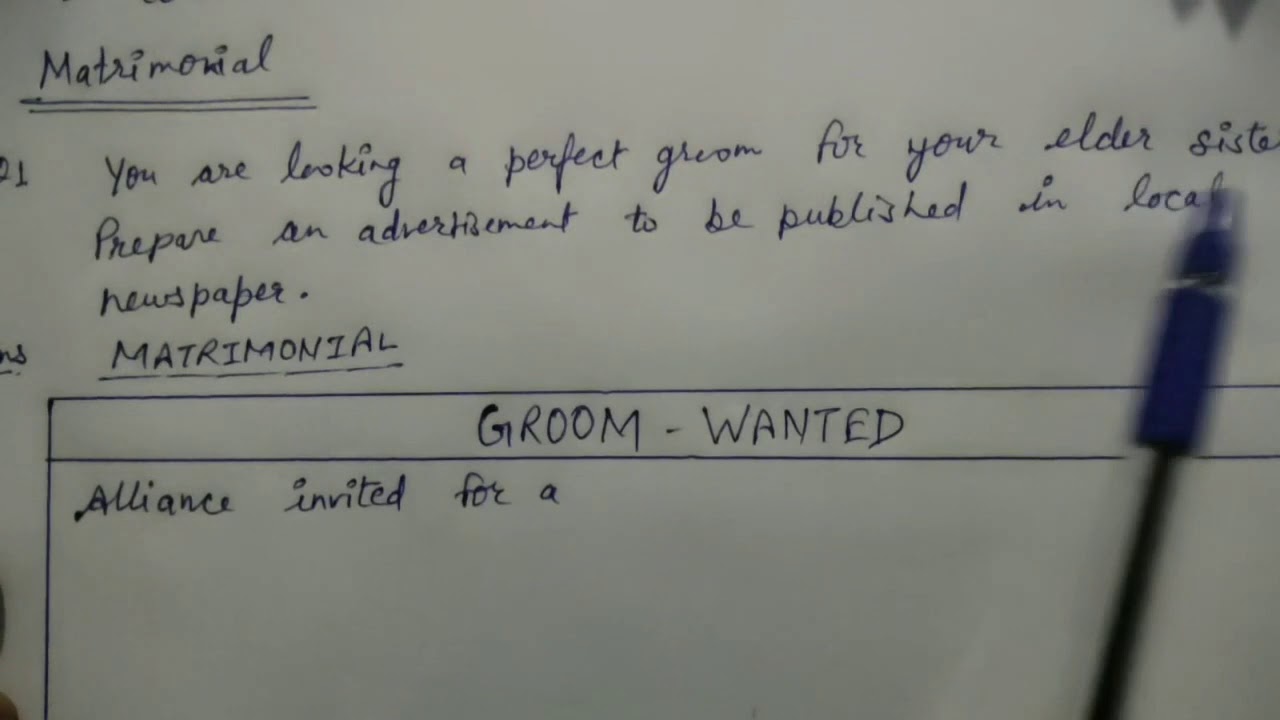 Matrimonial
Q1 You are looking a perfect groom for your elder siste
Prepare an advertisement to be published in local
newspaper.
ns MATRIMONIAL
GROOM - WANTED
Alliance invited for a